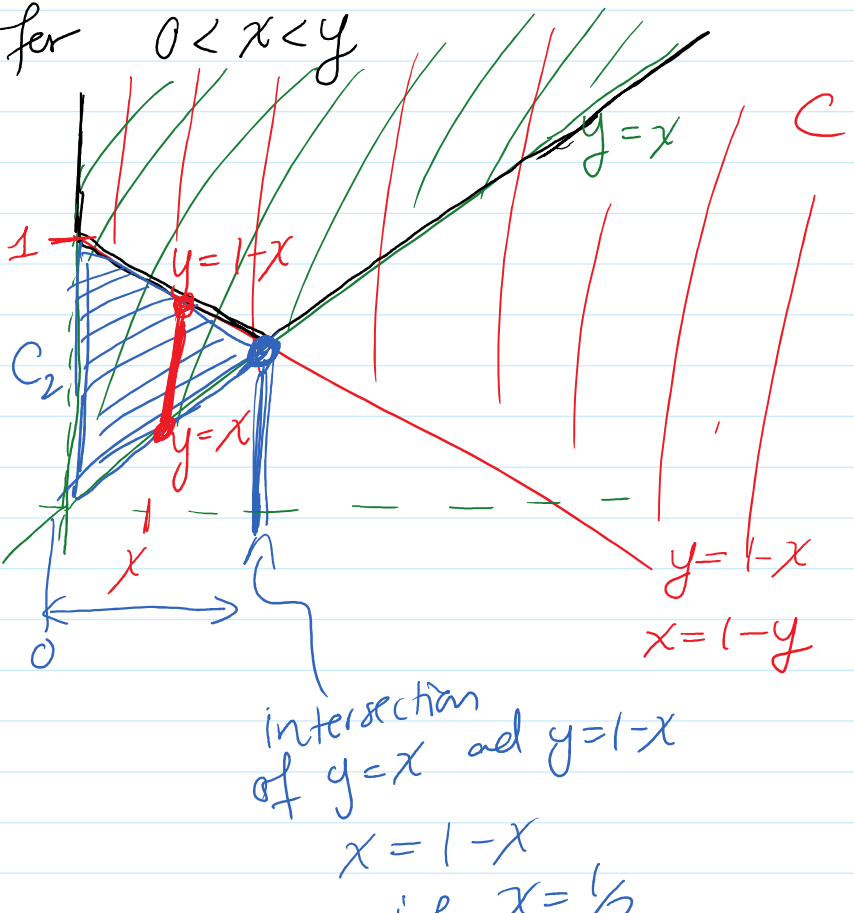 for 0 < x < y
C
y = x
1
y = 1-x
C2
y = x
x
y = 1-x
x = 1-y
0
intersection
of y = x ad y = 1-x
x = 1-x
i.e. x = 1/2